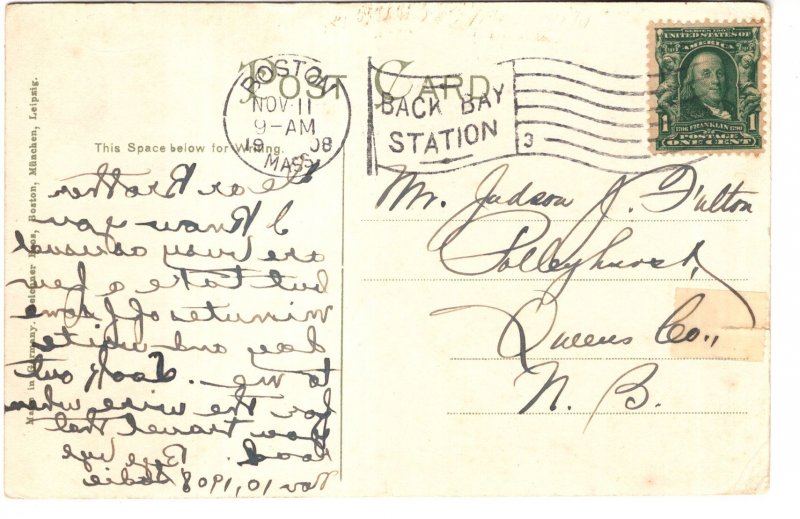 POST CARD
BOSTON
NOV 11
9-AM
1908
MASS.
BACK BAY
STATION
3
SERIES 1902
UNITED STATES OF
AMERICA
1 1
1706 FRANKLIN 1790
POSTAGE
ONE CENT
This Space below for Writing.
Made in Germany. Reichner Bros, Boston, München, Leipzig.
Dear Brother
I know you
are busy as usual
but take a few
minutes off some
day and write
to me. Look out
for the wires when
you travel that
road. Bye bye
Nov 10, 1908
Mr. Judson J. Fulton
Polleyhurst,
Queens Co.,
N. B.